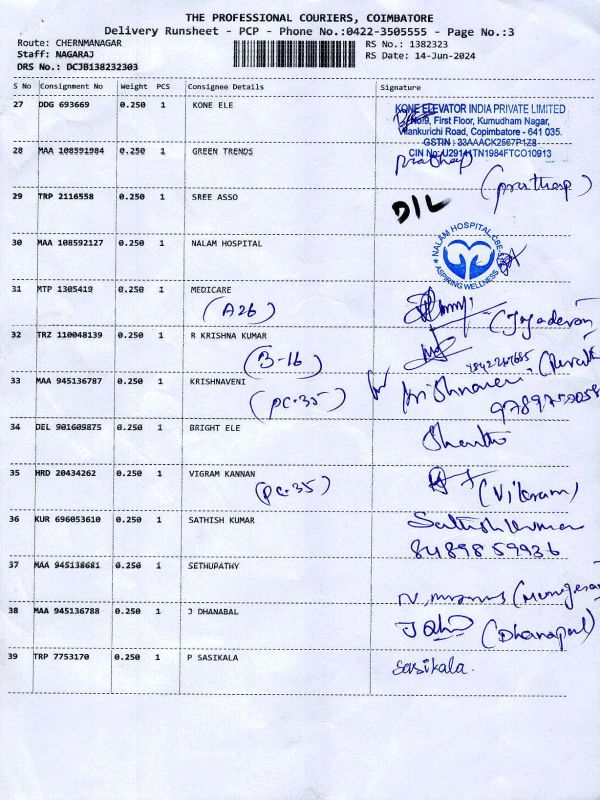 THE PROFESSIONAL COURIERS, COIMBATORE
Delivery Runsheet - PCP - Phone No.:0422-3505555 - Page No.:3
Route: CHERNMANAGAR
RS No.: 1382323
Staff: NAGARAJ
RS Date: 14-Jun-2024
DRS No.: DCJB138232303
S No Consignment No Weight PCS Consignee Details Signature
27 DDG 693669 0.250 1 KONE ELE
KONE ELEVATOR INDIA PRIVATE LIMITED
No:9, First Floor, Kumudham Nagar,
Vilankurichi Road, Coimbatore - 641 035.
GSTIN : 33AAACK2567P1Z8
CIN No: U29141TN1984FTCO10913
28 MAA 108591984 0.250 1 GREEN TRENDS
prathap (prathap)
29 TRP 2116558 0.250 1 SREE ASSO
D/L
30 MAA 108592127 0.250 1 NALAM HOSPITAL
NALAM HOSPITAL CBE
ASPIRING WELLNESS
31 MTP 1305419 0.250 1 MEDICARE
(A26) (Jayadevan)
32 TRZ 110048139 0.250 1 R KRISHNA KUMAR
(B-16)
33 MAA 945136787 0.250 1 KRISHNAVENI
(pc.35) for Krishnaveni
34 DEL 901609875 0.250 1 BRIGHT ELE
35 HRD 20434262 0.250 1 VIGRAM KANNAN
(pc.35) (Vikram)
36 KUR 696053610 0.250 1 SATHISH KUMAR
Sathishkumar
8489859936
37 MAA 945138681 0.250 1 SETHUPATHY
38 MAA 945136788 0.250 1 J DHANABAL
(Dhanapal)
39 TRP 7753170 0.250 1 P SASIKALA
Sasikala.